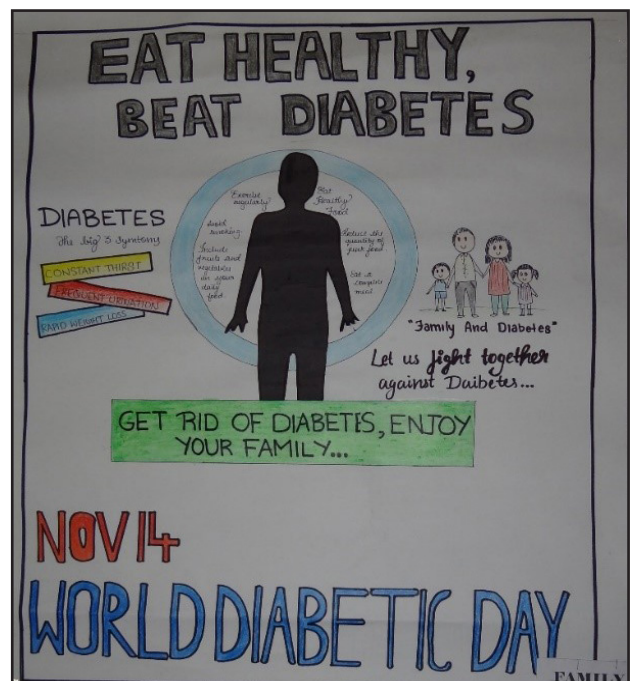 EAT HEALTHY,
BEAT DIABETES
DIABETES
The big 3 Symptoms
CONSTANT THIRST
FREQUENT URINATION
RAPID WEIGHT LOSS
Exercise
regularly
Avoid
smoking
Include
fruits and
vegetables
in your
daily
food
Eat
Healthy
Food
Reduce the
quantity of
junk food
Eat a
complete
meal
"Family And Diabetes"
Let us fight together
against Daibetes...
GET RID OF DIABETIS, ENJOY
YOUR FAMILY...
NOV 14
WORLD DIABETIC DAY
FAMILY